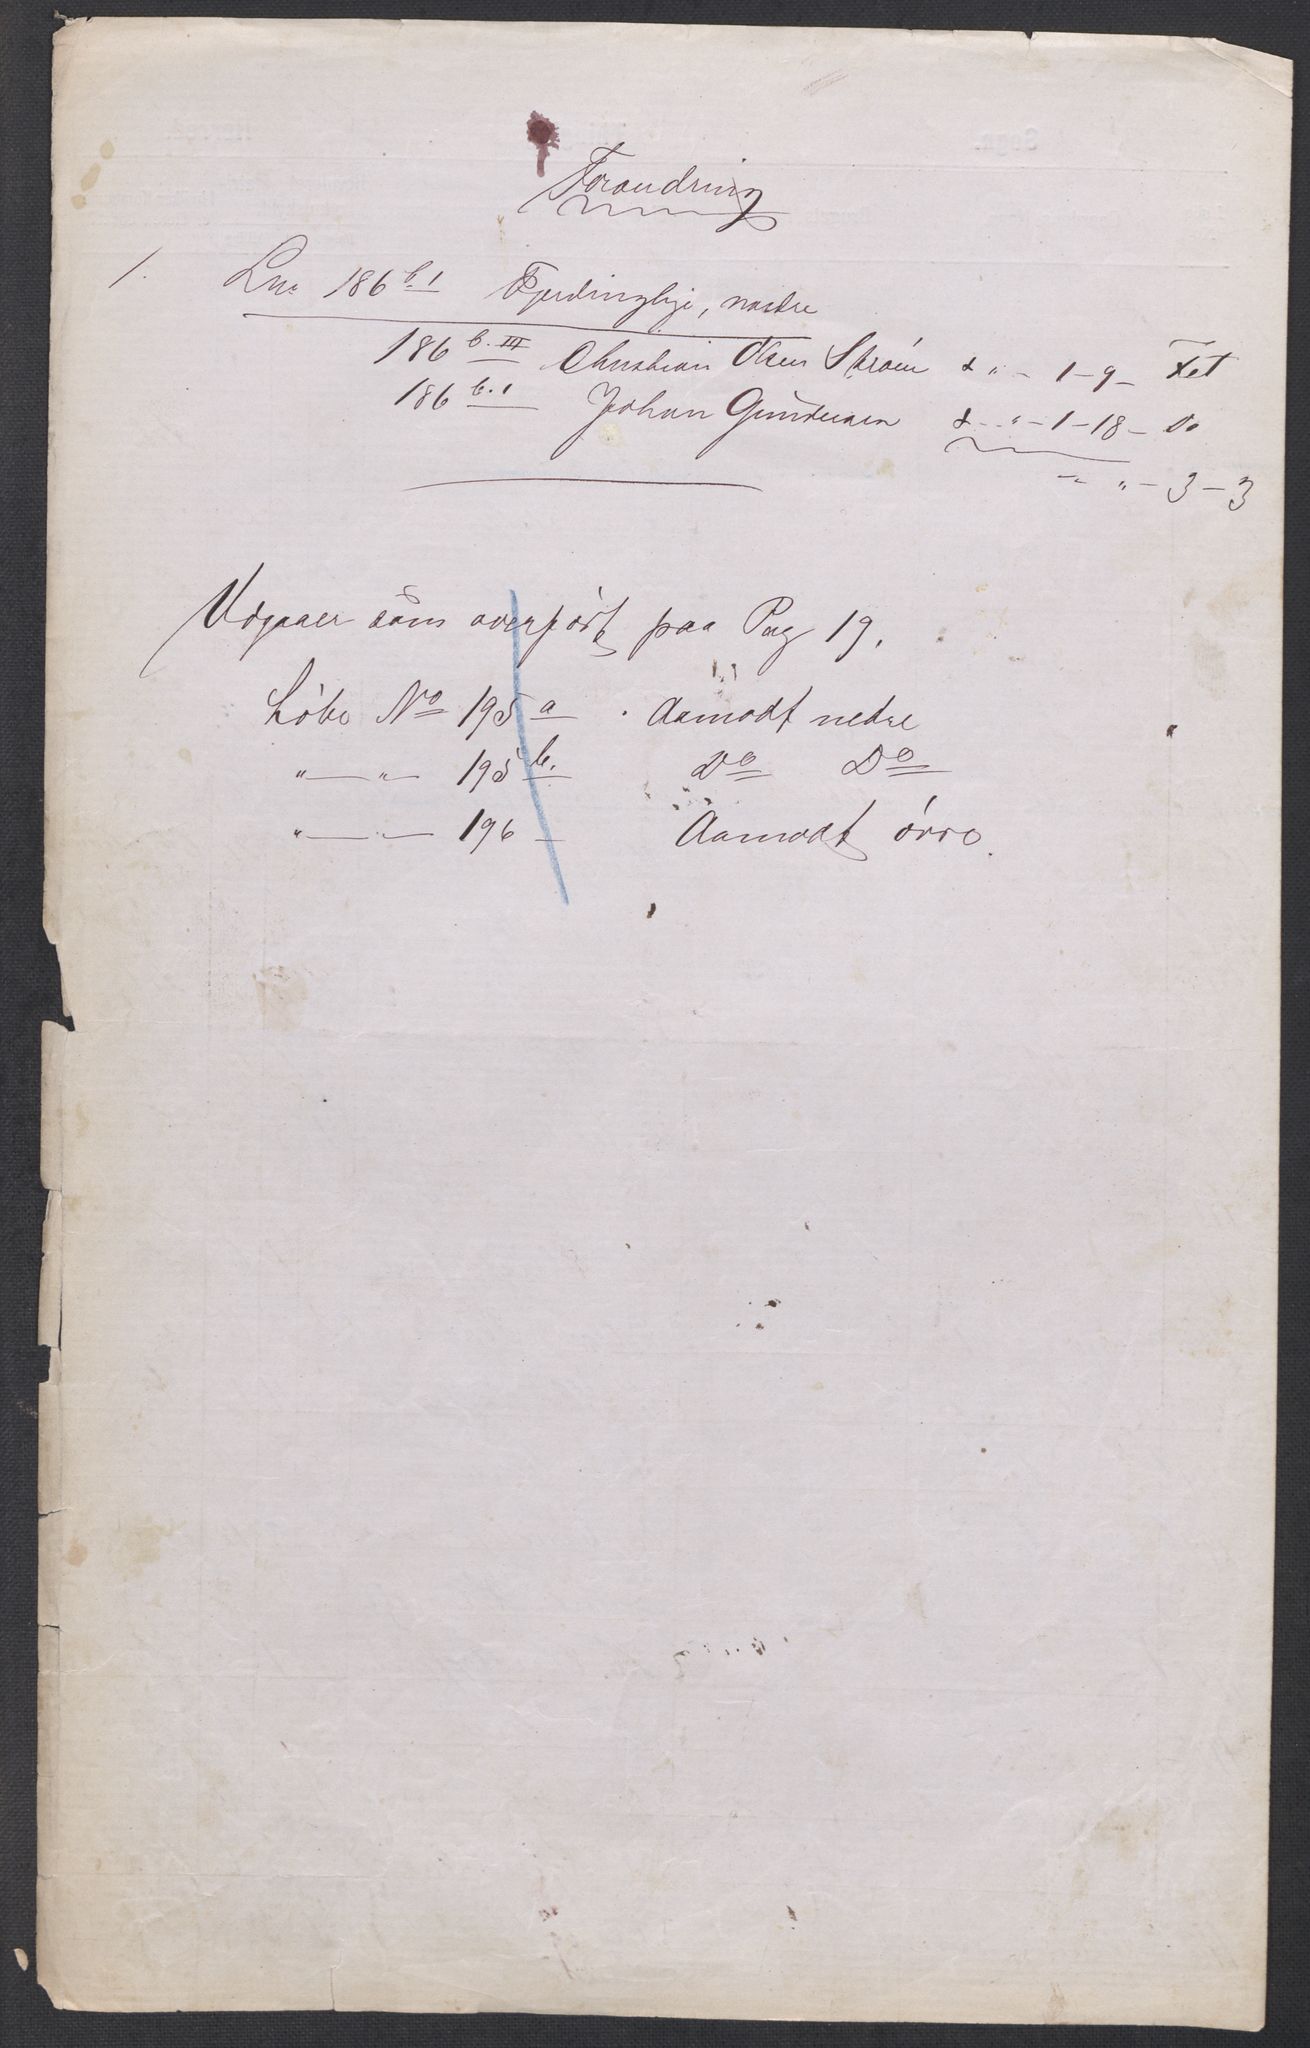 Forandring
1. Lno 186 b.1 Fjerdingbye, nordre
186 b.III Christian Olsen Strøm d " - 1 - 9 - Fet
186 b.1 Johan Gundersen d - " - 1 - 18 - Do
" " - 3 - 3
Udgaaer som overført paa Pag 19.
Löbe No 195 a Aamodt nedre
" — " — 195 b. Do Do
" — " — 196 — Aamodt övre.